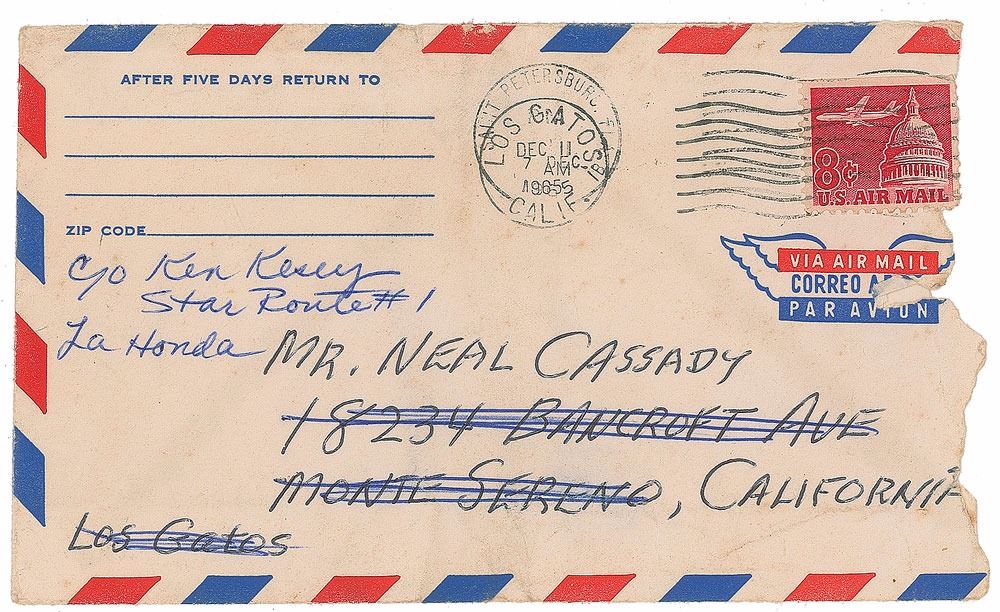 AFTER FIVE DAYS RETURN TO
ZIP CODE
SAINT PETERSBURG, FL
LOS GATOS
DEC 11
7 DEC
AM
1965
CALIF.
8¢
U.S. AIR MAIL
VIA AIR MAIL
CORREO
PAR AVION
c/o Ken Kesey
Star Route # 1
La Honda
MR. NEAL CASSADY
18234 BANCROFT AVE
MONTE SERENO, CALIFORNIA
Los Gatos